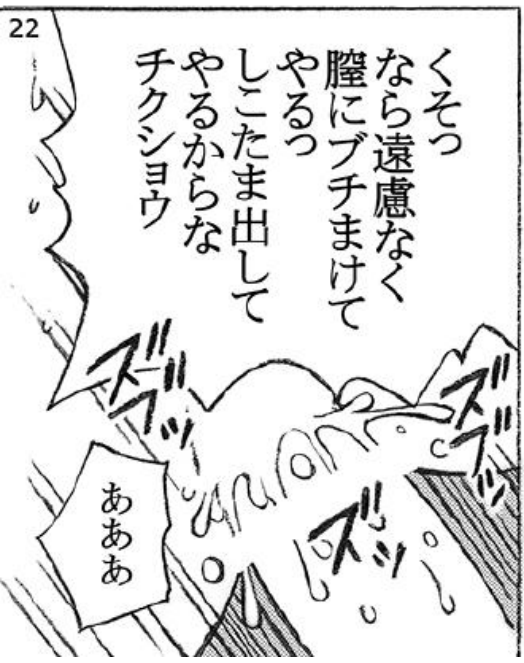 22
くそっ
なら遠慮なく
膣にブチまけて
やるっ
しこたま出して
やるからな
チクショウ
ズブッ
ズブッ
ズッ
あああ